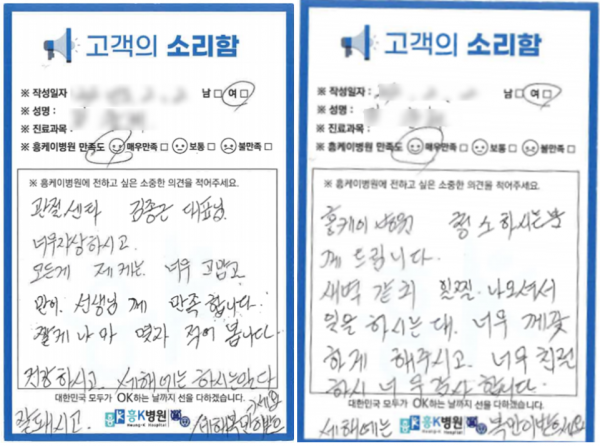 고객의 소리함
※ 작성일자
남 □ 여 □
※ 성명 :
※ 진료과목 :
※ 흥케이병원 만족도 매우만족 □ 보통 □ 불만족 □
※ 흥케이병원에 전하고 싶은 소중한 의견을 적어주세요.
관절센타 김종근 대표님
너무자상하시고.
모든게 제게는 너무 고맙고
만이. 선생님께 만족합니다.
짧게나마 몇자 적어 봅니다.
건강하시고. 세해에는 하시는일 다
대한민국 모두가 OK하는 날까지 선을 다하겠습니다.
잘돼시고.
흥K병원
Heung-K Hospital
고객의 소리함
※ 작성일자 :
남 □ 여 □
※ 성명 :
※ 진료과목 :
※ 흥케이병원 만족도 매우만족 □ 보통 □ 불만족 □
※ 흥케이병원에 전하고 싶은 소중한 의견을 적어주세요.
흥케이 병원 청소하시는분
께 드립니다.
새벽 같치 일찍. 나오셔서
일을 하시는대. 너무 께끗
하게 해주시고. 너무 친절
하시 너무 감사합니다.
대한민국 모두가 OK하는 날까지 선을 다하겠습니다.
세해에는
흥K병원
Heung-K Hospital
복만이받으